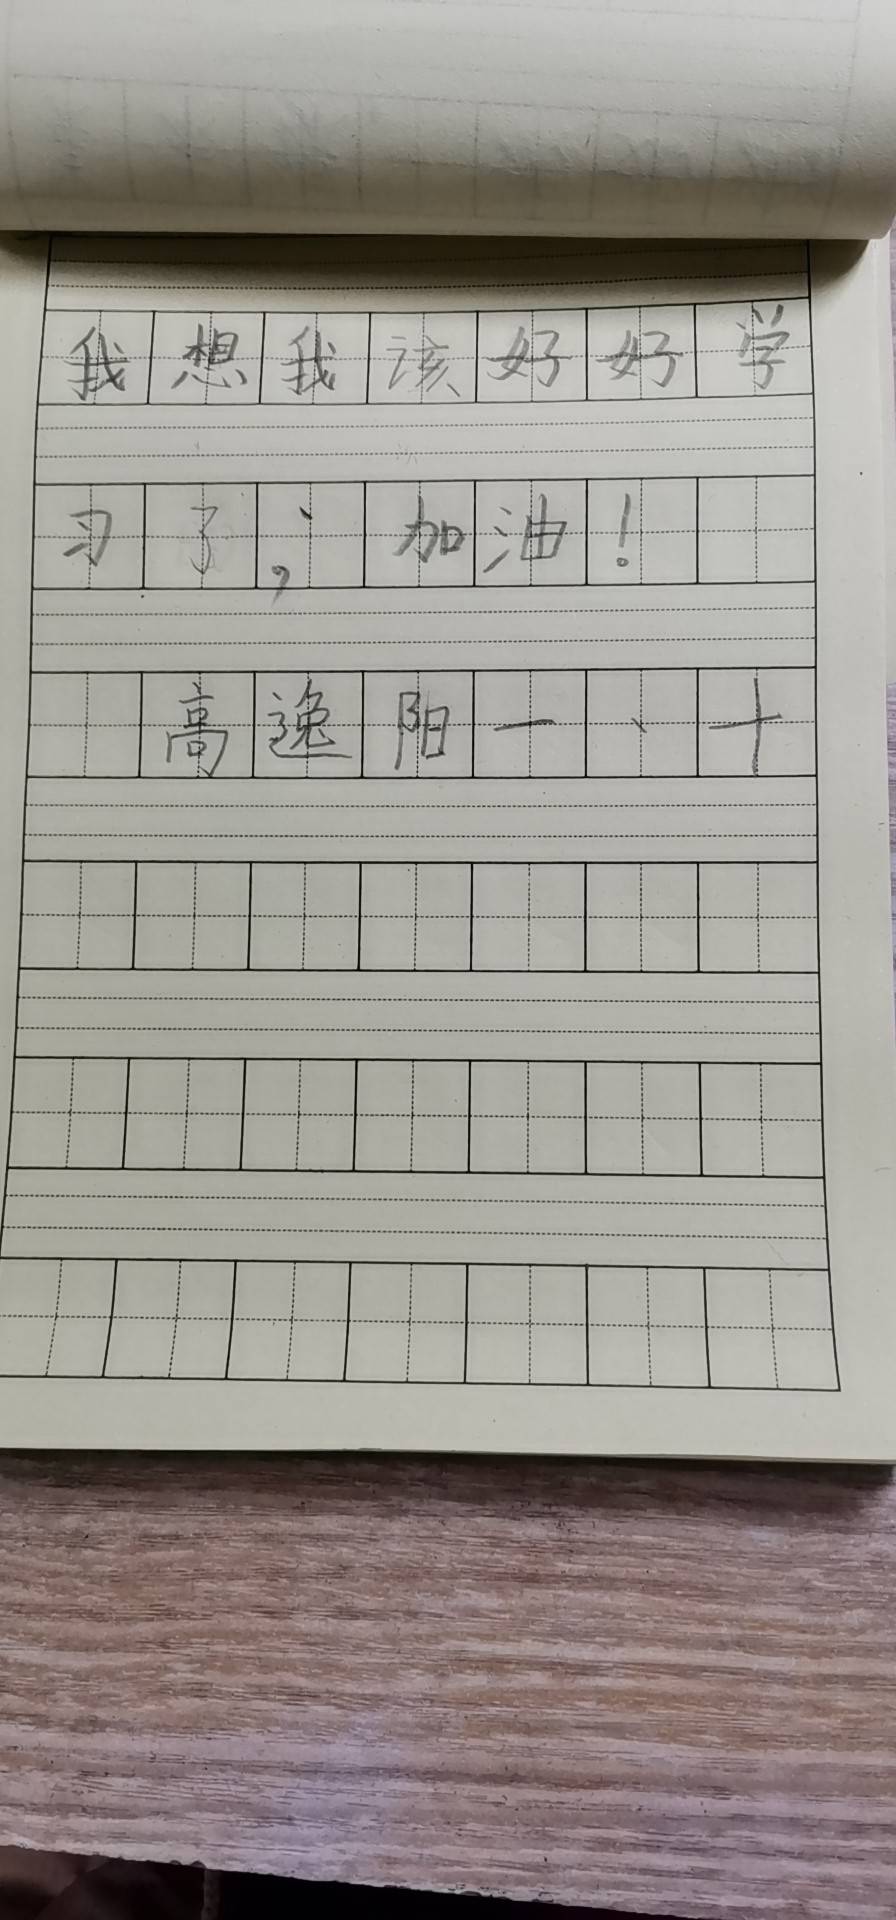 我想我该好好学
习了，加油！
高逸阳一、十